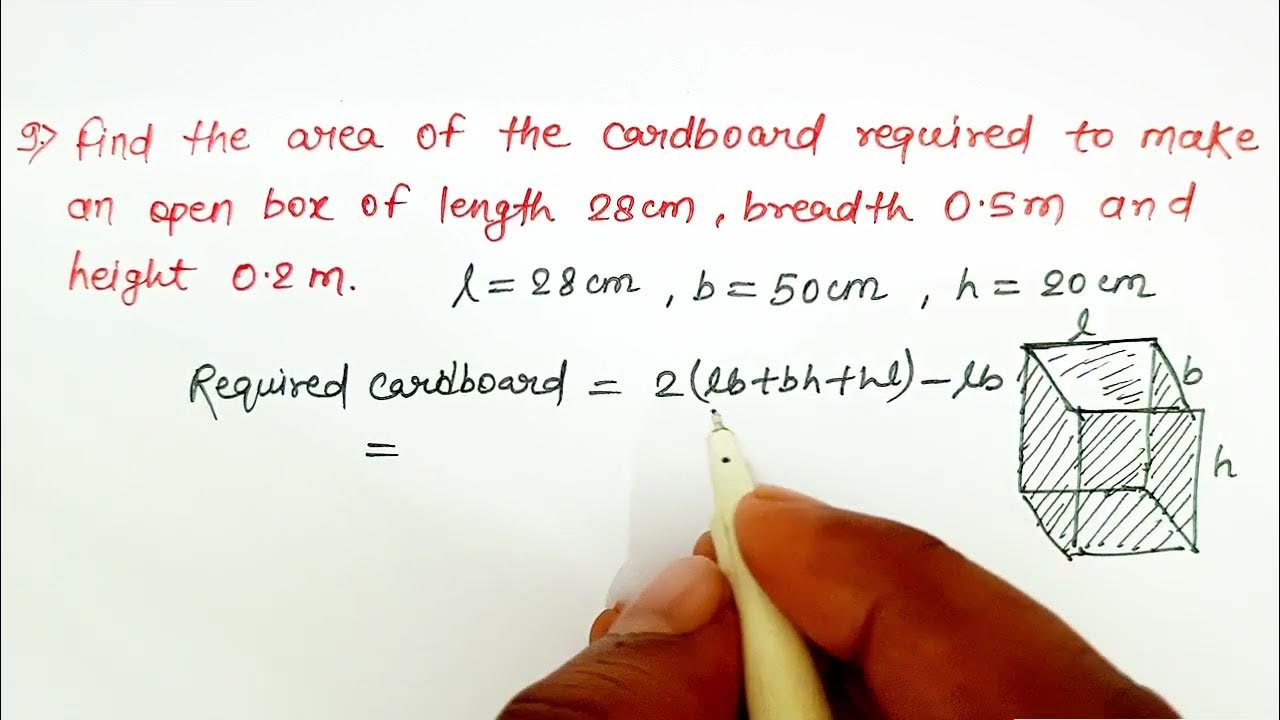 9.> find the area of the cardboard required to make
an open box of length 28cm, breadth 0.5m and
height 0.2 m. l = 28 cm, b = 50cm, h = 20 cm
Required cardboard = 2(lb+bh+hl) - lb
=
l
b
h